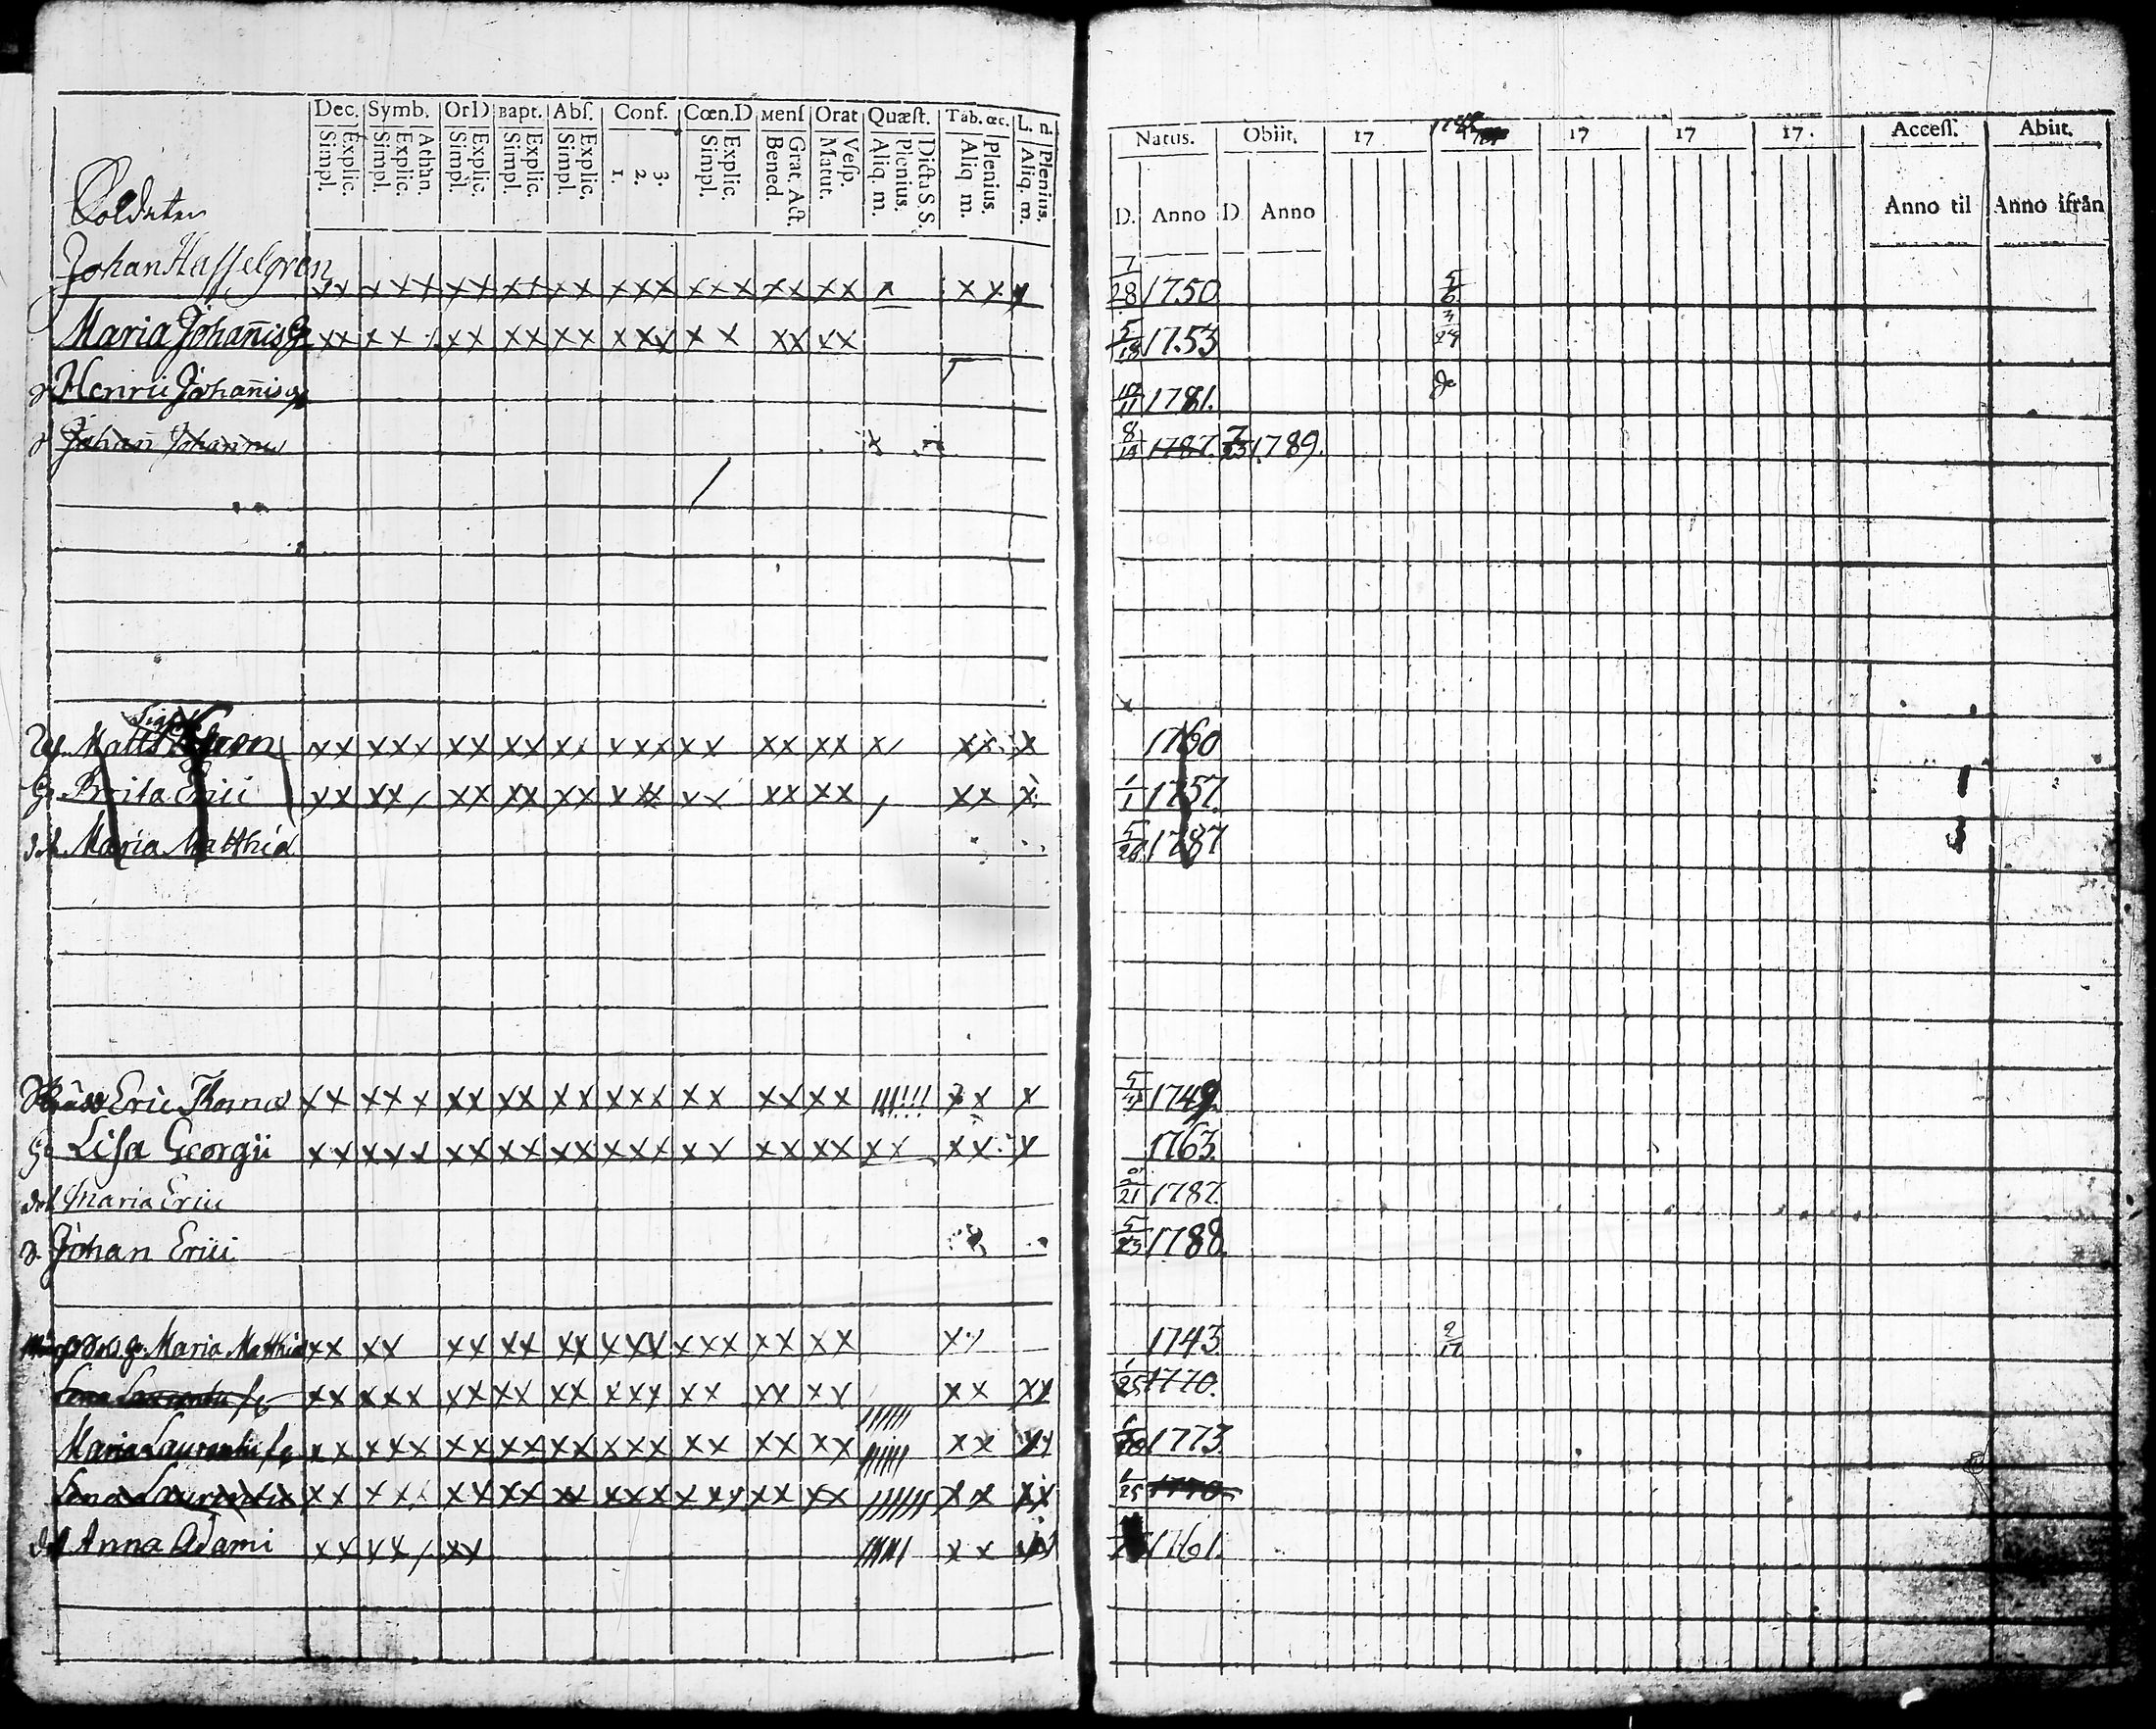 Dec. Symb. OrD Bapt. Abſ. Conf. Cœn.D Menſ Orat Quæſt. Tab. œc. L. n.
Simpl. Explic. Simpl. Explic. Athan. Simpl. Explic. Simpl. Explic. Simpl. Explic. 1. 2. 3. Simpl. Explic. Bened. Grat. Act. Matut. Veſp. Aliq. m. Plenius. Dicta S. S. Aliq m. Plenius. Aliq. m. Plenius.
Natus. Obiit. 17 17 17 17. Acceſſ. Abiit.
D. Anno D. Anno Anno til Anno ifrån
Soldaten
Johan Haſſelgren xx xxx xx xx xx xxx xxx xx xx x xx x 7/28 1750 5/6
Maria Johan̄is G. xx xx xx xx xx xxx xx xx xx 5/18 1753 3/24
Henric Johan̄is 1781. do
Johan Johannis 8/14 1787. 7/23 1789.
Matts gren xx xxx xx xx xx xxx xx xx xx x/ xx x 1760
Brita Erici xx xx/ xx xx xx xxx xx xx xx / xx x 1/1 1757.
Maria Matthiæ 5/26 1787
Eric Thomæ xx xxx xx xx xx xxx xx xx xx //////  xx x 1749.
Liſa Georgii xx xxx xx xx xx xxx xx xx xx xx xx x 1763.
dot Maria Erici 21 1787.
Johan Erici 5/23 1788.
Maria Matthiæ xx xx xx xx xx xxx xxx xx xx x/ 1743. 2/17
Lena Laurentii xx xxx xx xx xx xxx xx xx xx xx xx 1/25 1770.
Maria Laurentii xx xxx xx xx xx xxx xx xx xx xx xx 1773.
Lena Laurentii xx xxx xx xx xx xxx xxx xx xx xx xx 1/25 1770
Anna Adami xx xx/ xx xx 1761.